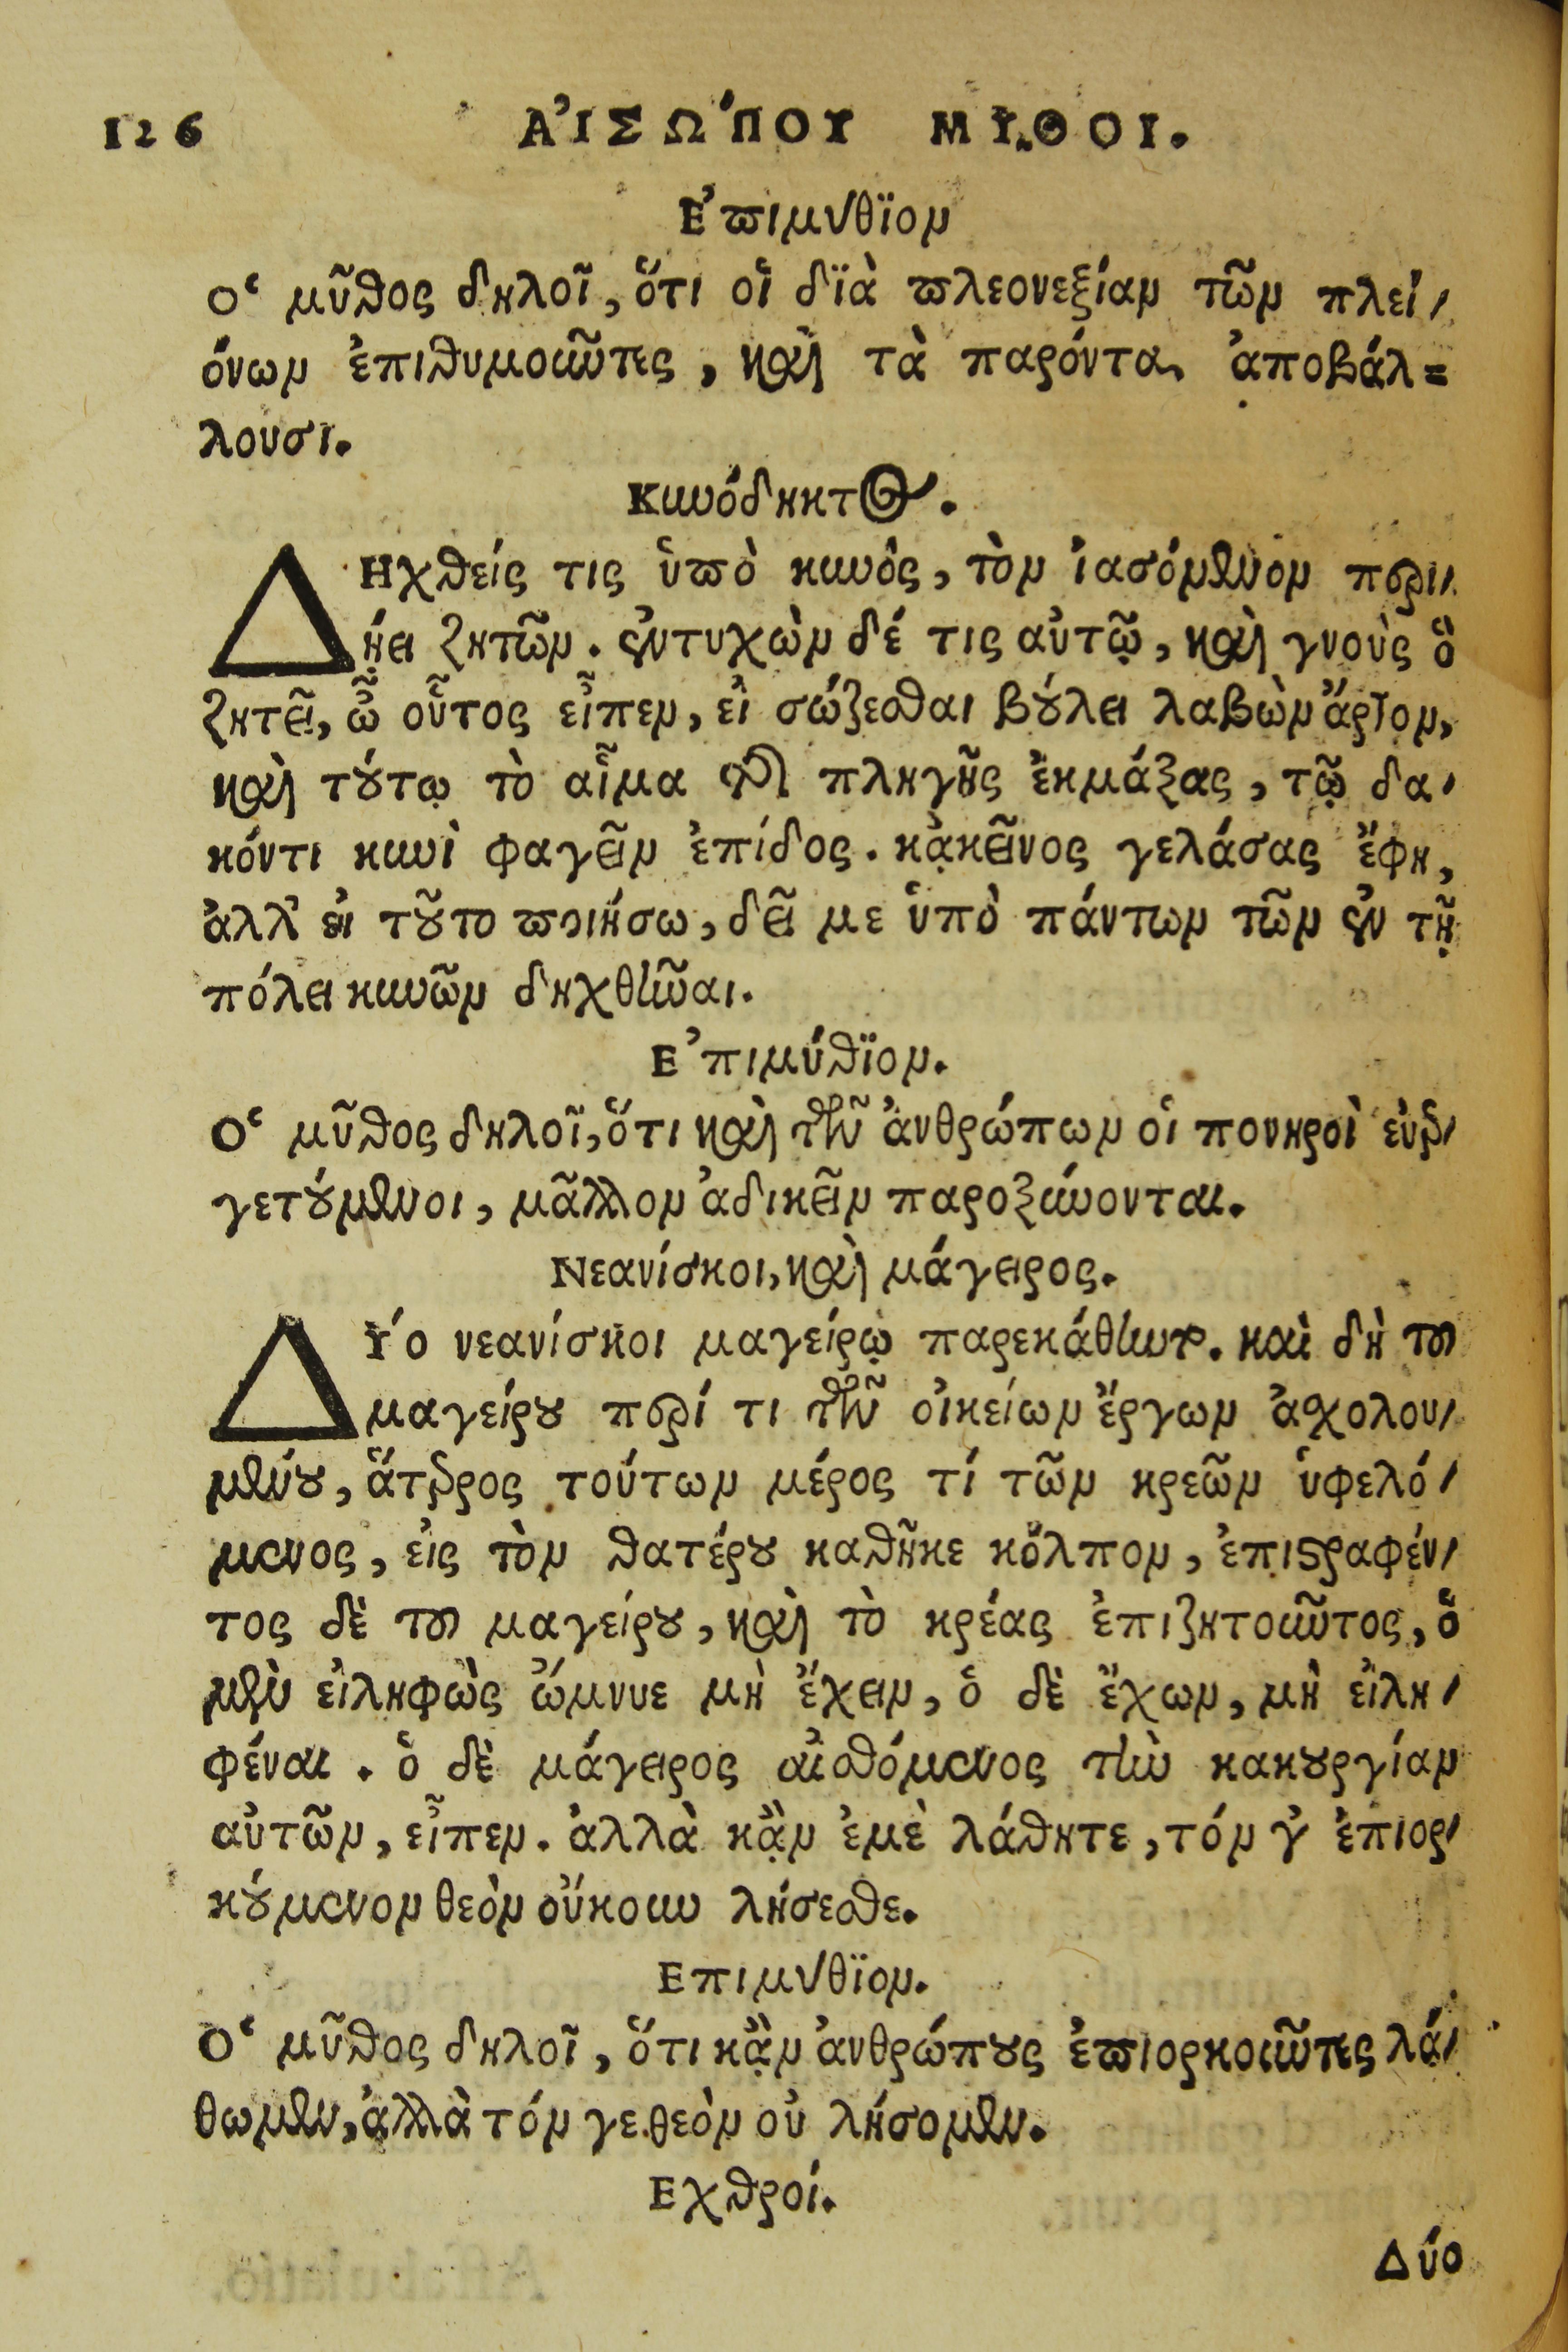 126 ΑἸΣΩΠΟΥ ΜΥ͂ΘΟΙ.
Ἐπιμύθϊον
Ὁ μῦθος δηλοῖ, ὅτι οἱ δϊὰ πλεονεξίαν τῶν πλει-
όνων ἐπιθυμοῦντες, καὶ τὰ παρόντα ἀποβάλ=
λουσι.
Κυνόδηκτος.
ΔΗχθείς τις ὑπὸ κυνὸς, τὸν ἰασόμενον περι-
ῄει ζητῶν. ἐντυχὼν δέ τις αὐτῷ, καὶ γνοὺς ὃ
ζητεῖ, ὦ οὗτος εἶπεν, εἰ σώζεσθαι βούλει λαβὼν ἄρτον,
καὶ τούτῳ τὸ αἷμα τῆς πληγῆς ἐκμάξας, τῷ δα-
κόντι κυνὶ φαγεῖν ἐπίδος. κᾀκεῖνος γελάσας ἔφη,
ἀλλ' εἰ τοῦτο ποιήσω, δεῖ με ὑπὸ πάντων τῶν ἐν τῇ
πόλει κυνῶν δηχθῆναι.
Ἐπιμύθϊον.
Ὁ μῦθος δηλοῖ, ὅτι καὶ τῶν ἀνθρώπων οἱ πονηροὶ εὐερ-
γετούμενοι, μᾶλλον ἀδικεῖν παροξύνονται.
Νεανίσκοι, καὶ μάγειρος.
ΔΎο νεανίσκοι μαγείρῳ παρεκάθηντο. καὶ δὴ τοῦ
μαγείρου περί τι τῶν οἰκείων ἔργων ἀσχολου-
μένου, ἅτερος τούτων μέρος τί τῶν κρεῶν ὑφελό-
μενος, εἰς τὸν θατέρου καθῆκε κόλπον, ἐπιστραφέν-
τος δὲ τοῦ μαγείρου, καὶ τὸ κρέας ἐπιζητοῦντος, ὁ
μὲν εἰληφὼς ὤμνυε μὴ ἔχειν, ὁ δὲ ἔχων, μὴ εἰλη-
φέναι. ὁ δὲ μάγειρος αἰσθόμενος τὴν κακουργίαν
αὐτῶν, εἶπεν. ἀλλὰ κᾂν ἐμὲ λάθητε, τόν γ' ἐπιορ-
κούμενον θεὸν οὔκουν λήσεσθε.
Επιμύθϊον.
Ὁ μῦθος δηλοῖ, ὅτι κᾂν ἀνθρώπους ἐπιορκοῦντες λά-
θωμεν, ἀλλὰ τόν γε θεὸν οὐ λήσομεν.
Εχθροί.
Δύο